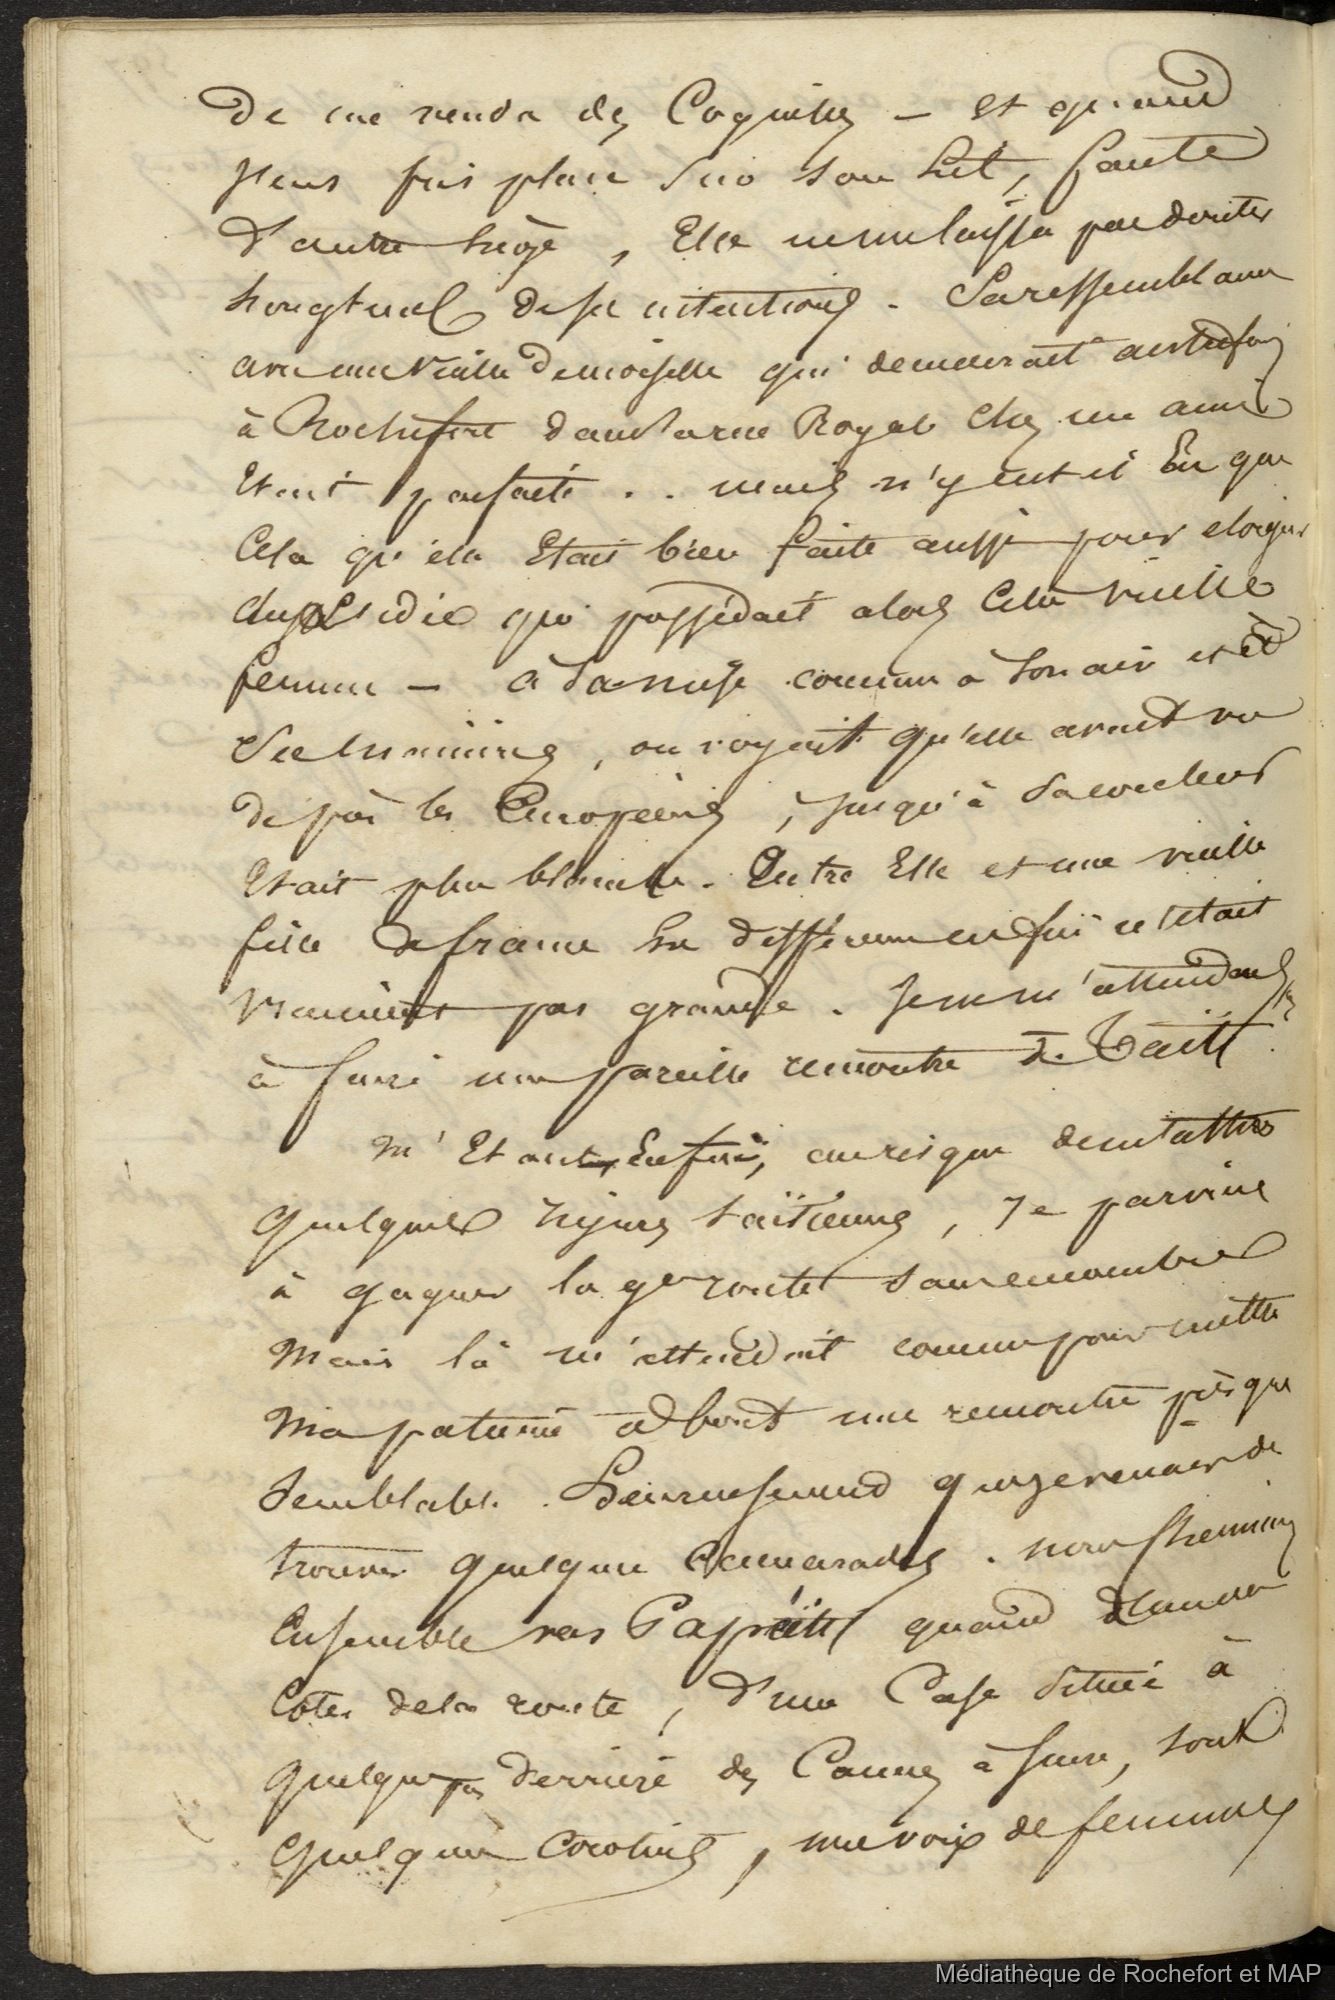 De me vendre des Coquilles — et quand
J'eus pris place sur son lit, faute
D'autre siège, Elle ne me laissa pas douter
longtems de ses intentions. Sa ressemblance
avec une vieille Demoiselle qui demeurait autrefois
à Rochefort dans la rue Royale chez un ami
Etait parfaite .. mais n'y eut il Eu que
Cela qu'elle Etait bien faite aussi pour eloigner
qui possédait alors Cette vieille
femme — à sa mise comme à son air et à
ses manières, on voyait qu'elle avait vu
de près les Européens, jusqu'à sa couleur
Etait plus blanche. Entre Elle et une vieille
fille de france la différence enfin n'était
vraiment pas grande. Je ne m'attendais pas
à faire une pareille rencontre à Taïti.
M'Etant Enfui, au risque de m'attirer
quelques injures taïtiennes, je parvins
à gagner la gde route sans encombre
Mais là m'attendait comme pour mettre
Ma patience à bout une rencontre presque
Semblable. Heureusement que je venais de
trouver quelques Camarades. nous cheminions
Ensemble vers Papeïti quand de l'autre
Côté de la route, d'une Case située à
quelques pas derrière des Cannes à sucre, sous
quelques Cocotiers, une voix de femme
Médiathèque de Rochefort et MAP